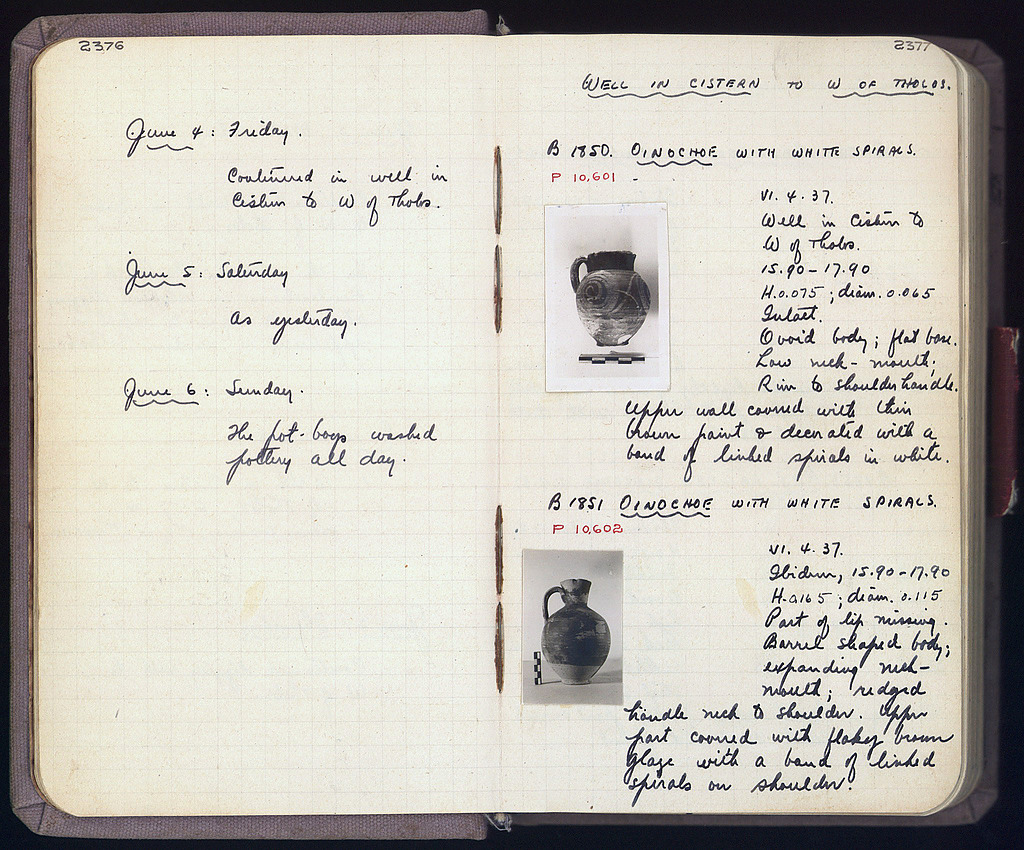 2376
June 4: Friday.
Continued in well in
Cistern to W of Tholos.
June 5: Saturday
As yesterday.
June 6: Sunday.
The pot-boys washed
pottery all day.
2377
WELL IN CISTERN TO W OF THOLOS.
B 1850. OINOCHOE WITH WHITE SPIRALS.
P 10,601 -
VI. 4. 37.
Well in Cistern to
W of Tholos.
15.90-17.90
H.0.075; diam. 0.065
Intact.
Ovoid body; flat base.
Low neck-mouth;
Rim to shoulder handle.
Upper wall covered with thin
brown paint & decorated with a
band of linked spirals in white.
B 1851 OINOCHOE WITH WHITE SPIRALS.
P 10,602
VI. 4. 37.
Ibidem, 15.90-17.90
H.0.165; diam. 0.115
Part of lip missing.
Barrel shaped body;
expanding neck-
mouth; ridged
handle neck to shoulder. Upper
part covered with flakey brown
glaze with a band of linked
spirals on shoulder.